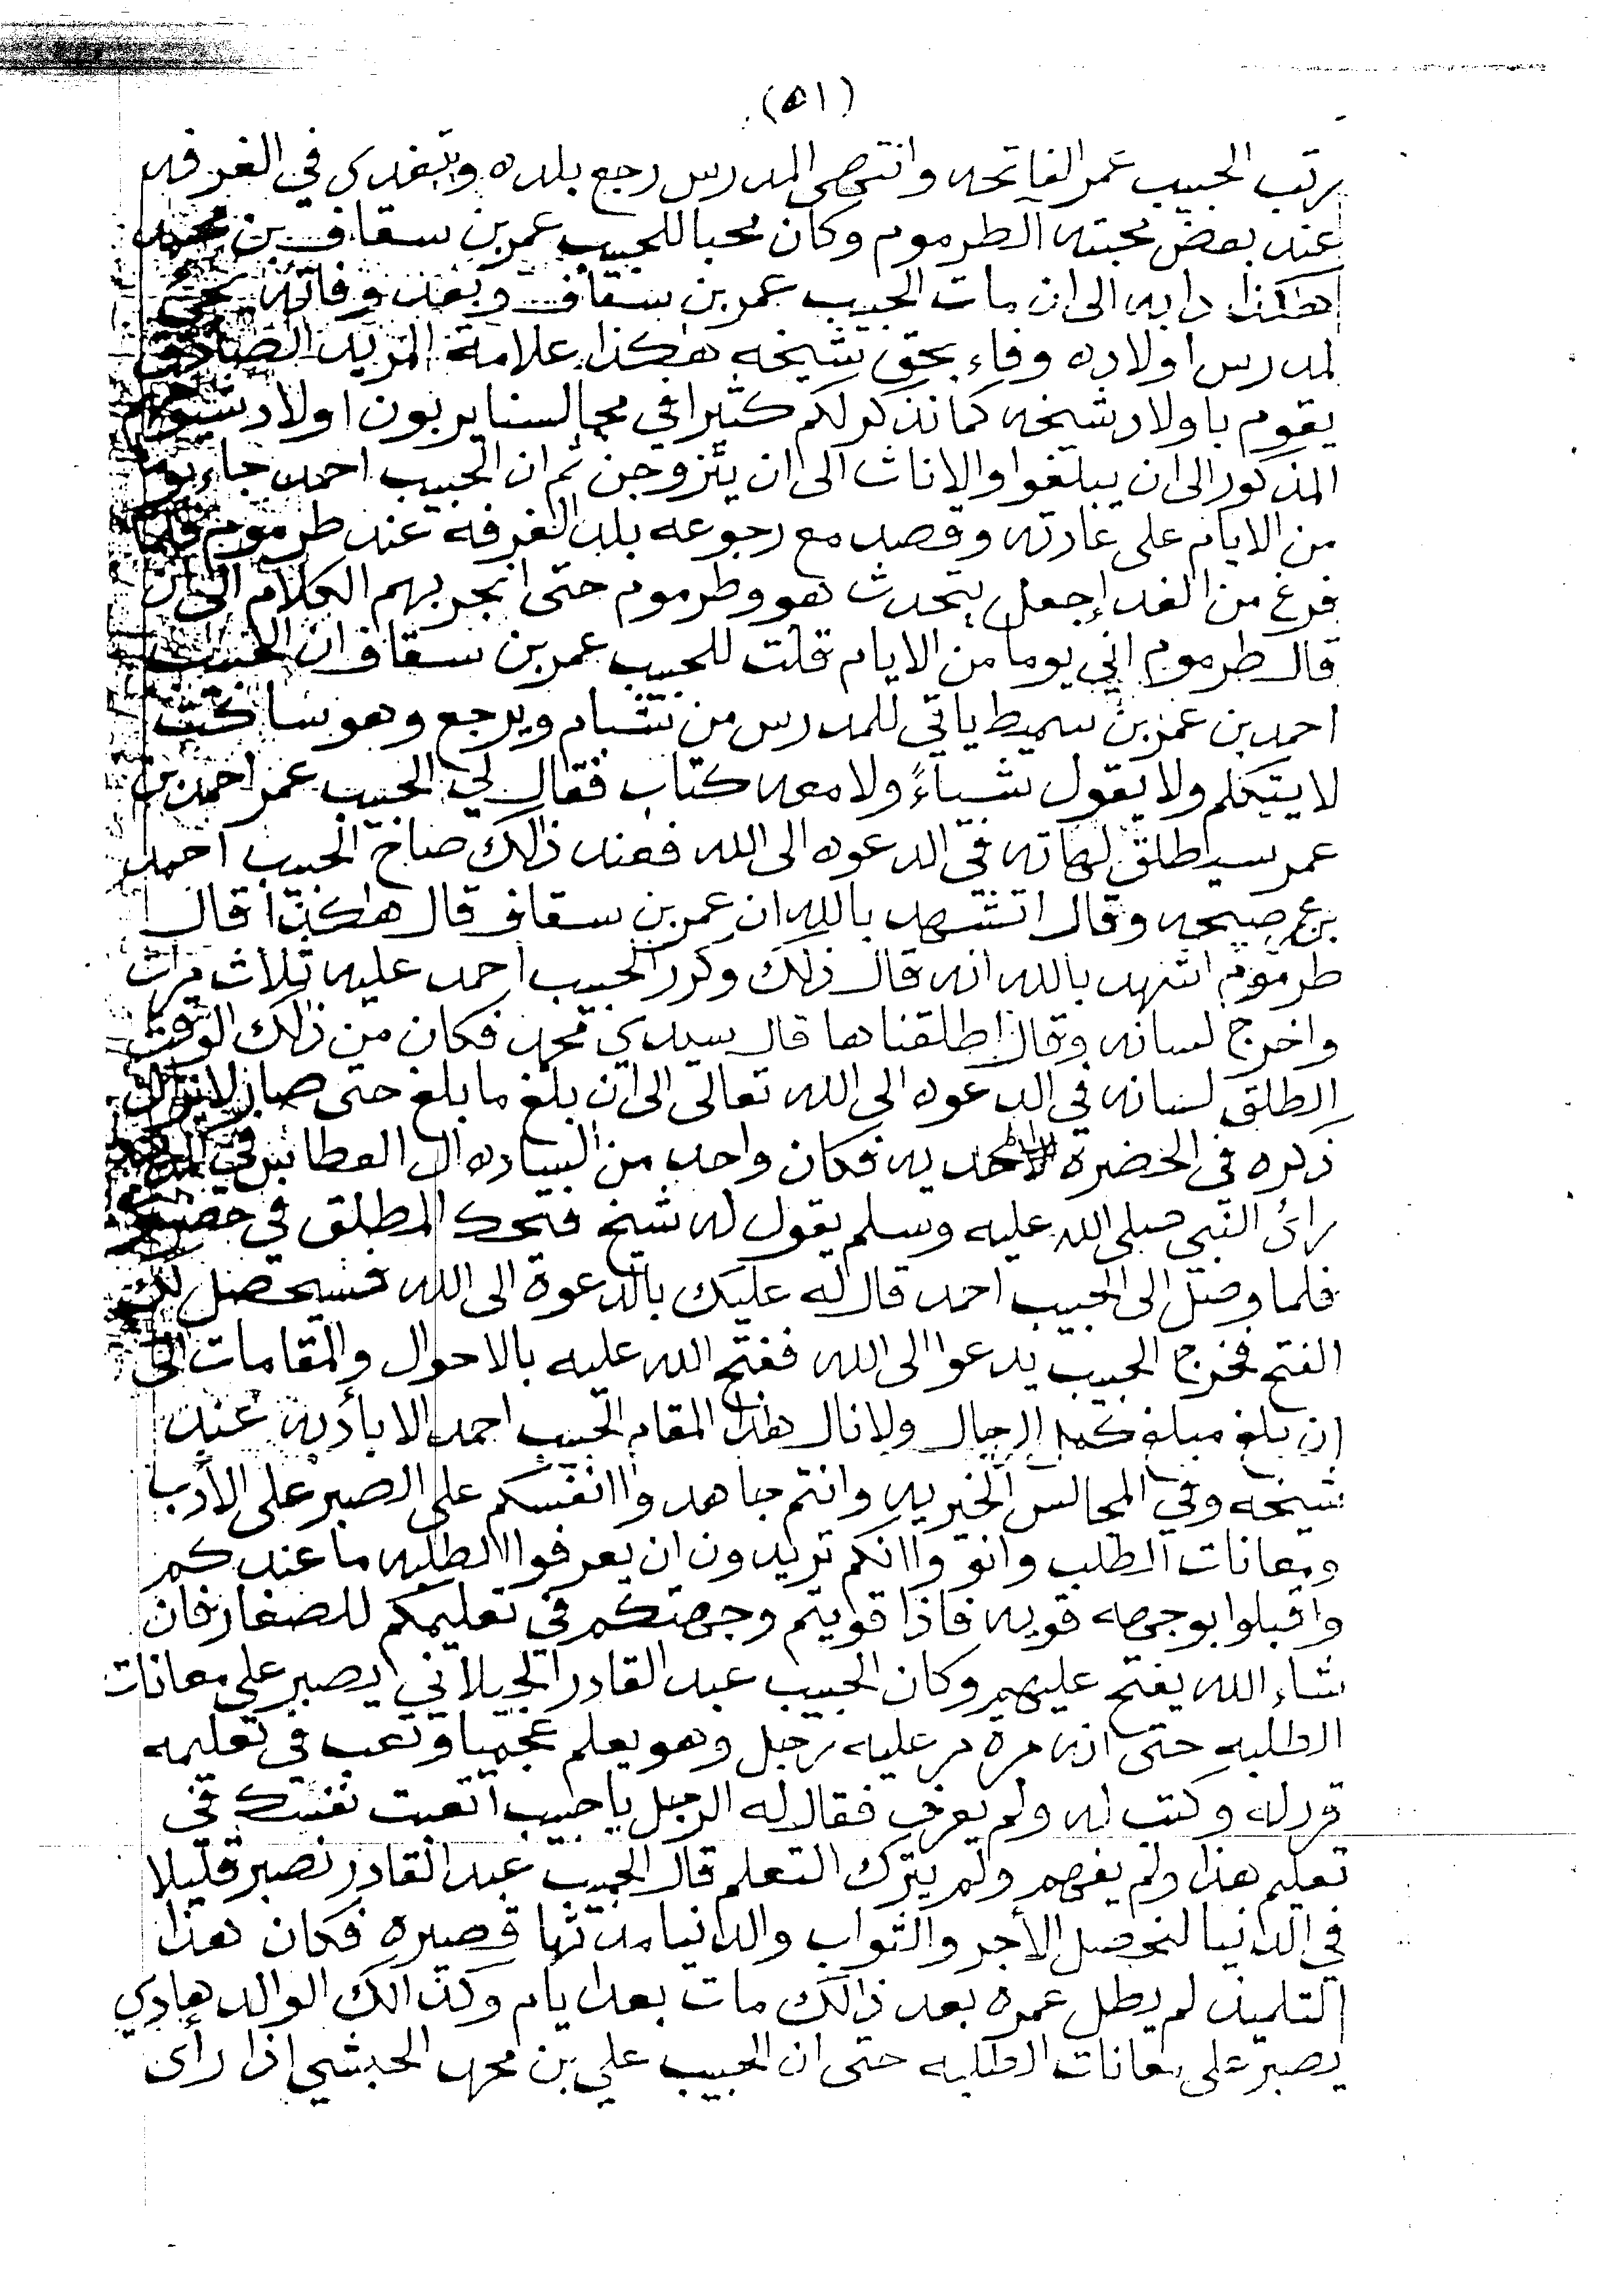 (٥١)
رتب الحبيب عمر الفاتحه وانتهى المدرس رجع بلده ويتغدى في الغرفه
عند بعض محبته الطرموم وكان محبا للحبيب عمر بن سقاف بن محمد
هكذا دابه الى ان مات الحبيب عمر بن سقاف وبعد وفاته يجي
لمدرس اولاده وفاء بحق شيخه هكذا علامة المريد الصادق
يقوم باولاد شيخه كما نذكر لكم كثيرا في مجالسنا يربون اولاد
المذكور الى ان يبلغوا والاناث الى ان يتزوجن ثم ان الحبيب احمد جاء يوما
من الايام على عادته وقصد مع رجوعه بلد الغرفه عند طرموم فلما
فرغ من الغدا جعل يتحدث هو وطرموم حتى انجر بهم الكلام الى ان
قال طرموم اني يوما من الايام قلت للحبيب عمر بن سقاف ان الحبيب
احمد بن عمر بن سميط ياتي للمدرس من شبام ويرجع وهو ساكت
لا يتكلم ولا يقول شياءً ولا معه كتاب فقال لي الحبيب عمر احمد بن
عمر سيطلق لهاته في الدعوه الى الله فعند ذالك صاح الحبيب احمد
بن عمر صيحه وقال اتشهد بالله ان عمر بن سقاف قال هكذا قال
طرموم اشهد بالله انه قال ذلك وكرر الحبيب احمد عليه ثلاث مرات
واخرج لسانه وقال اطلقناها قال سيدي محمد فكان من ذالك الوقت
انطلق لسانه في الدعوه الى الله تعالى الى ان بلغ ما بلغ حتى صار لا يزال
ذكره في الحضرة الاحمديه فكان واحد من الساده ال العطاس في
رائ النبي صلى الله عليه وسلم يقول له شيخ فتحك المطلق في
فلما وصل الى الحبيب احمد قال له عليك بالدعوة الى الله فسيحصل لك
الفتح فخرج الحبيب يدعوا الى الله ففتح الله عليه بالاحوال والمقامات الى
ان بلغ مبلغ كمل الرجال ولا نال هذا المقام الحبيب احمد الا بأدبه عند
شيخه وفي المجالس الخيريه وانتم جاهدوا انفسكم على الصبر على الأدب
ومعانات الطلب وانووا انكم تريدون ان يعرفوا الطلبه ما عندكم
واقبلوا بوجهه قويه فاذا قويتم وجهتكم في تعليمكم للصغار فان
شاء الله يفتح عليهم وكان الحبيب عبد القادر الجيلاني يصبر على معانات
الطلبه حتى انه مره مر عليه رجل وهو يعلم عجميا وتعب في تعليمه
قرر له وكتب له ولم يعرف فقال له الرجل يا حبيب اتعبت نفسك في
تعليم هذا ولم يفهم ولم يترك التعلم قال الحبيب عبد القادر نصبر قليلا
في الدنيا لنحصل الأجر والثواب والدنيا مدتها قصيره فكان هذا
التلميذ لم يطل عمره بعد ذالك مات بعد ايام وكذالك الوالد هادي
يصبر على معانات الطلبه حتى ان الحبيب علي بن محمد الحبشي اذا رأى